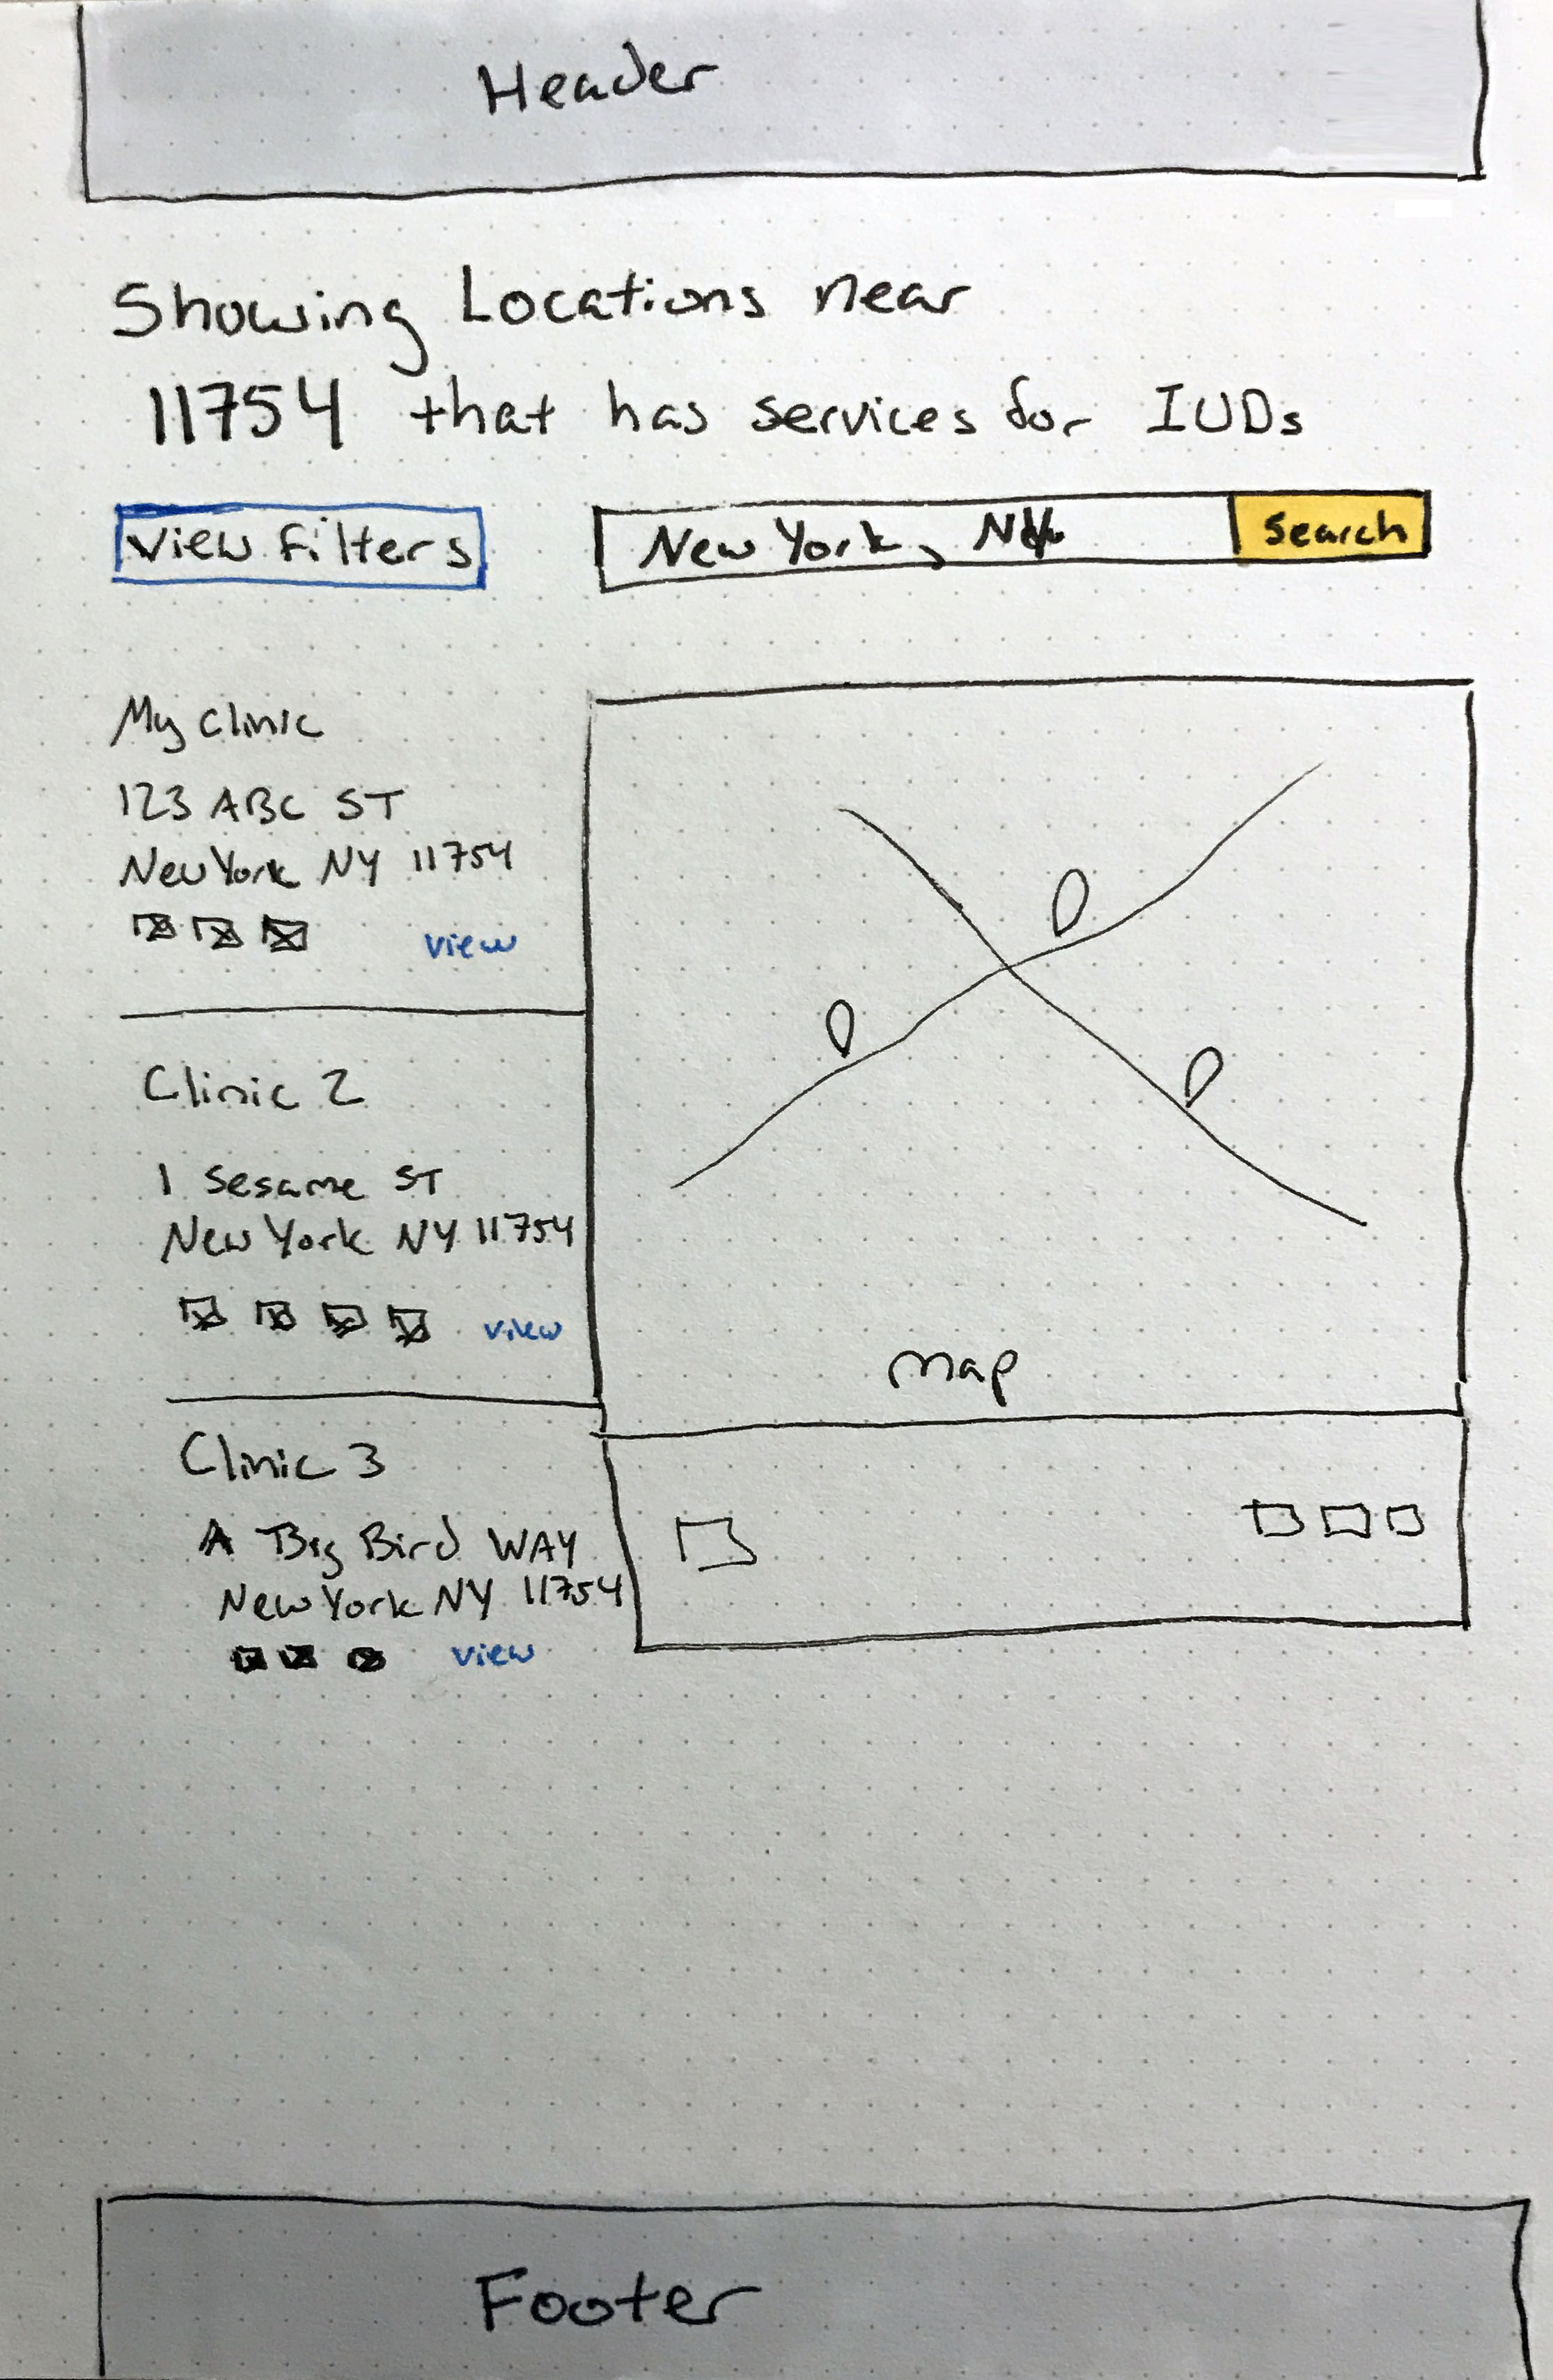 Header
Showing Locations near
11754 that has services for IUDs
View Filters
New York, NY
Search
My Clinic
123 ABC ST
New York NY 11754
view
Clinic 2
1 Sesame ST
New York NY 11754
view
Clinic 3
A Big Bird WAY
New York NY 11754
view
map
Footer